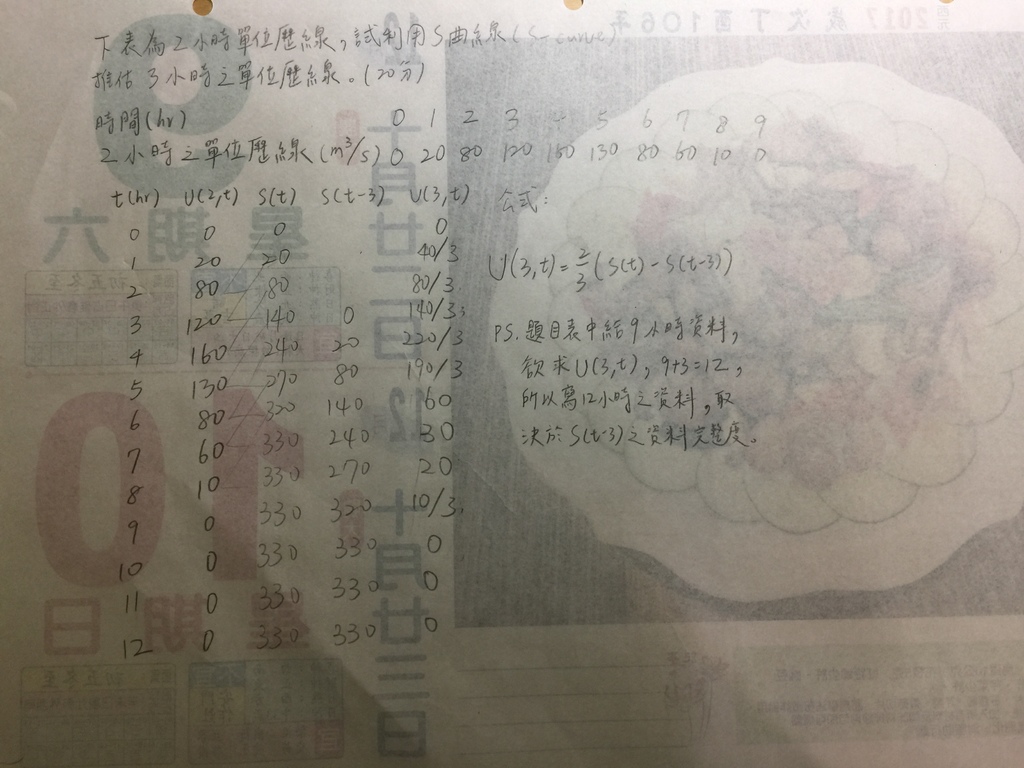 下表為2小時單位歷線,試利用S曲線(S-curve)
推估3小時之單位歷線。(20分)
時間(hr) 0 1 2 3 4 5 6 7 8 9
2小時之單位歷線(m³/s) 0 20 80 120 160 130 80 60 10 0
t(hr) U(2,t) S(t) S(t-3) U(3,t) 公式:
0 0 0 0
1 20 20 40/3
U(3,t)=2/3(S(t)-S(t-3))
2 80 80 80/3
3 120 140 0 140/3
PS.題目表中給9小時資料,
4 160 240 20 220/3
欲求U(3,t),9+3=12,
5 130 270 80 190/3
所以寫12小時之資料,取
6 80 320 140 60
決於S(t-3)之資料完整度。
7 60 330 240 30
8 10 330 270 20
9 0 330 320 10/3
10 0 330 330 0
11 0 330 330 0
12 0 330 330 0
2017歲次丁酉106年
十月廿二日
星期六
10
12
十月廿三日
星期日